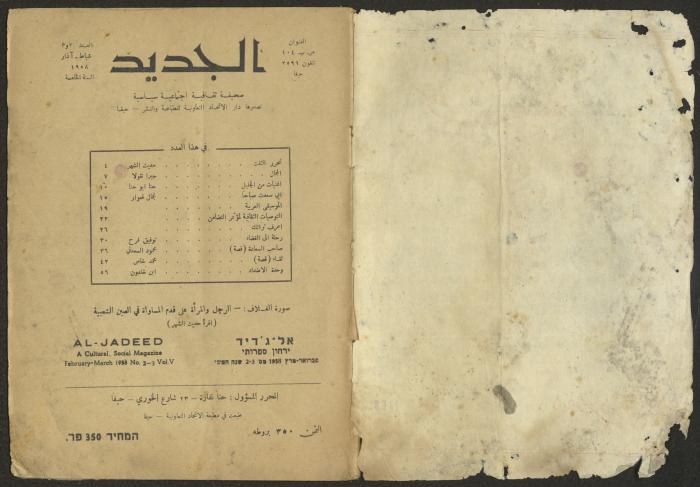 العنوان
ص. ب ١٠٤
تلفون ٢٥٩٦
حيفا
الجديد
العدد ٢ و٣
شباط - آذار
١٩٥٨
السنة الخامسة
صحيفة ثقافية اجتماعية سياسية
تصدرها دار الاتحاد التعاونية للطباعة والنشر - حيفا
في هذا العدد
حديث الشهر ٤
جبرا نقولا ٧
اغنيات من الجليل . . . حنا ابو حنا ١٠
جمال قعوار ١٧
الموسيقى العربية . . . ١٩
التوصيات الثقافية لمؤتمر التضامن . . . ٢٢
اعرف تراثك . . . ٢٦
رحلة الى الفضاء . . . توفيق فرح ٣٠
صاحب السعادة (قصة) . . . محمود السعدني ٣٦
لقاء (قصة) . . . محمد خاص ٤٢
وحدة الاضداد . . . ابن خلدون ٥٦
صورة الغلاف : - الرجل والمرأة على قدم المساواة في الصين الشعبية
(اقرأ حديث الشهر)
AL-JADEED
A Cultural, Social Magazine
February-March 1958 No. 2-3 Vol. V
אל-ג'דיד
ירחון ספרותי
פברואר-מרץ 1958 מס 2-3 שנה חמש'
المحرر المسؤول : حنا نقارة - ٢٣ شارع الخوري - حيفا
طبعت في مطبعة الاتحاد التعاونية - حيفا
الثمن ٣٥٠ بروطه
המחיר 350 פר.